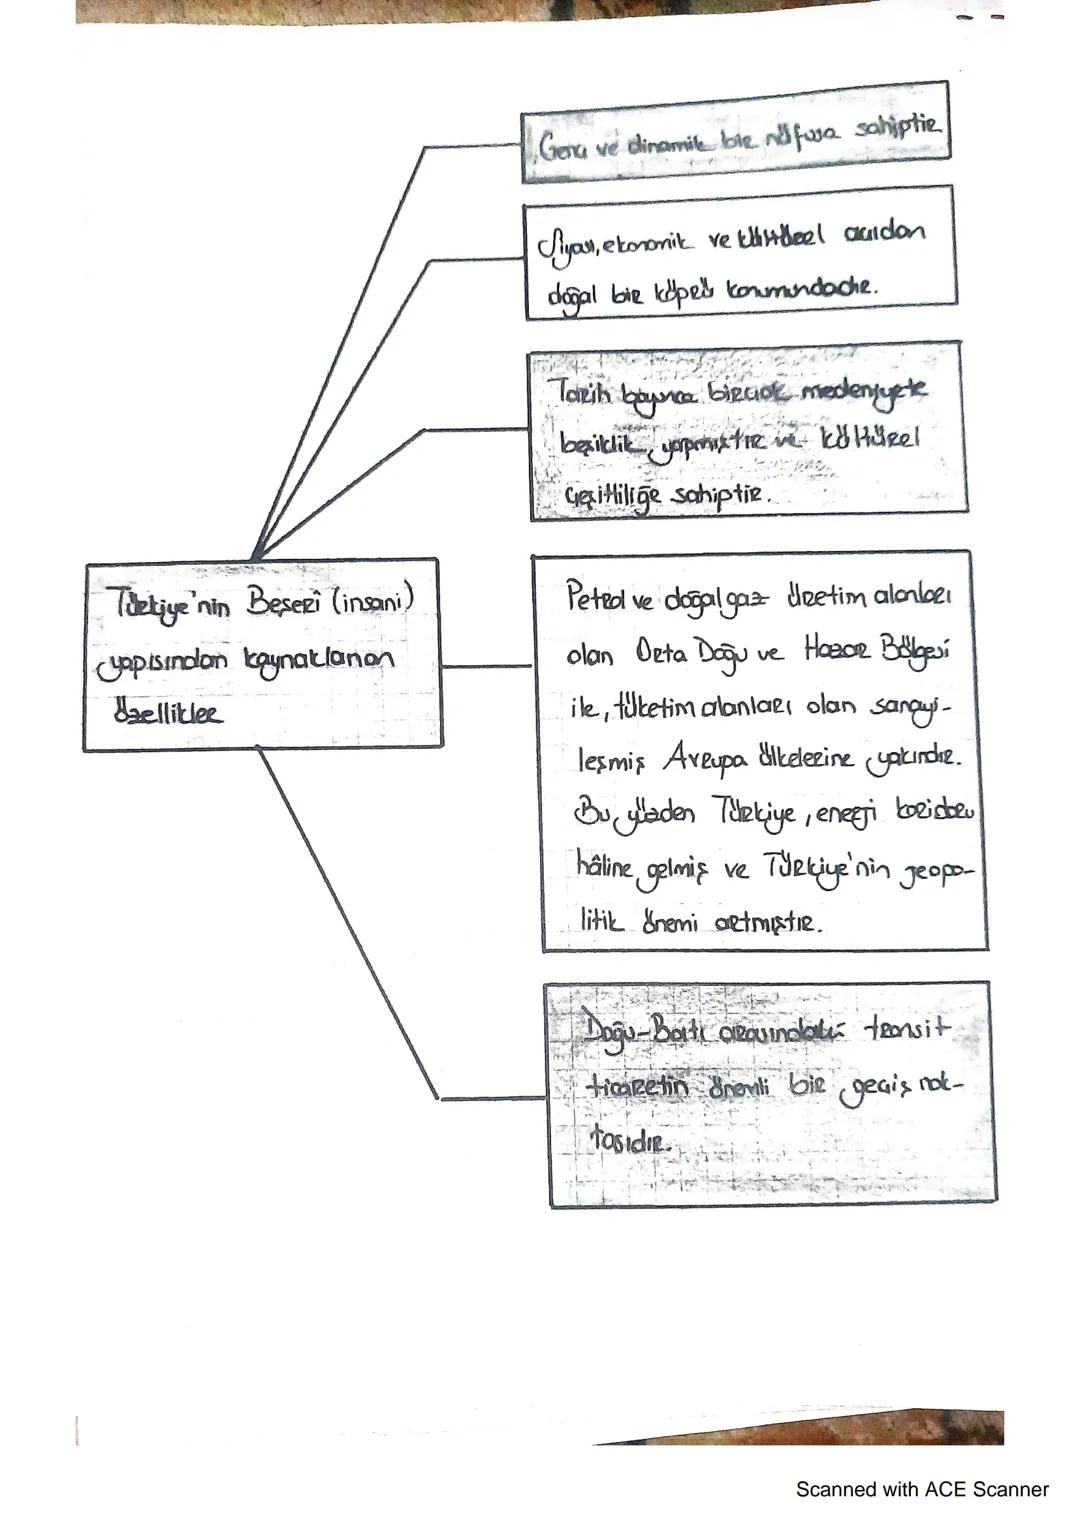 Genç ve dinamik bir nüfusa sahiptir
Siyasi, ekonomik ve kültürel açıdan
doğal bir köprü konumundadır.
Tarih boyunca birçok medeniyete
beşiklik yapmıştır ve kültürel
çeşitliliğe sahiptir.
Türkiye'nin Beşeri (insani)
yapısından kaynaklanan
özellikler
Petrol ve doğalgaz üretim alanları
olan Orta Doğu ve Hazar Bölgesi
ile, tüketim alanları olan sanayi-
leşmiş Avrupa ülkelerine yakındır.
Bu yüzden Türkiye, enerji koridoru
hâline gelmiş ve Türkiye'nin jeopo-
litik önemi artmıştır.
Doğu-Batı arasındaki transit
ticaretin önemli bir geçiş nok-
tasıdır.
Scanned with ACE Scanner